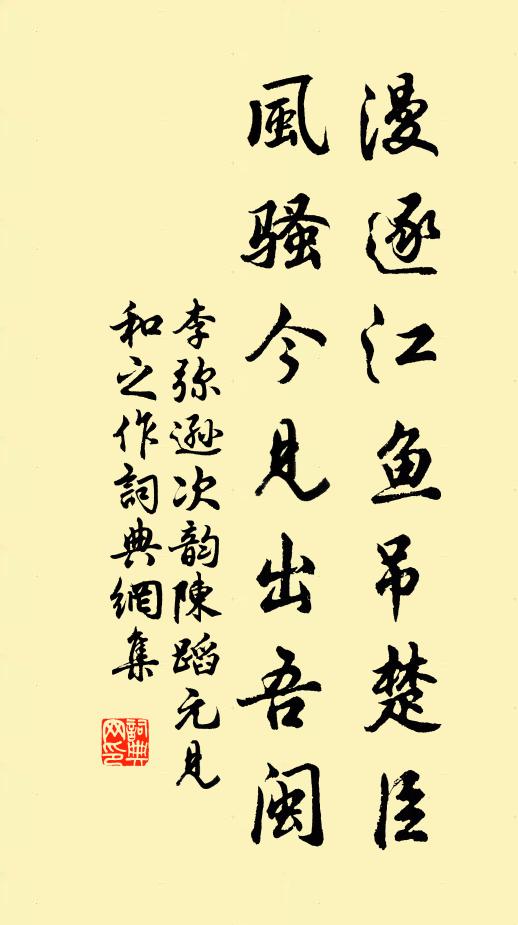 漫逐江魚吊楚臣
風騷今見出吾閩
李弥遜次韵陳蹈元見
和之作詞典網集
詞典網印